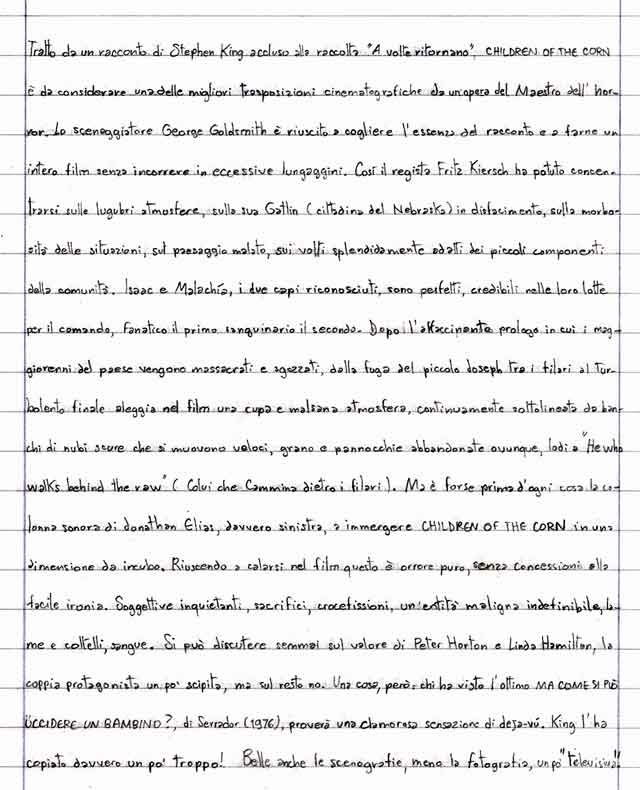 Tratto da un racconto di Stephen King accluso alla raccolta "A volte ritornano", CHILDREN OF THE CORN
è da considerare una delle migliori trasposizioni cinematografiche da un'opera del Maestro dell'hor-
ror. Lo sceneggiatore George Goldsmith è riuscito a cogliere l'essenza del racconto e a farne un
intero film senza incorrere in eccessive lungaggini. Così il regista Fritz Kiersch ha potuto concen-
trarsi sulle lugubri atmosfere, sulla sua Gatlin (cittadina del Nebraska) in disfacimento, sulla morbo-
sità delle situazioni, sul paesaggio malato, sui volti splendidamente adatti dei piccoli componenti
della comunità. Isaac e Malachia, i due capi riconosciuti, sono perfetti, credibili nelle loro lotte
per il comando, fanatico il primo sanguinario il secondo. Dopo l'affascinante prologo in cui i mag-
giorenni del paese vengono massacrati e sgozzati, dalla fuga del piccolo Joseph tra i filari al tur-
bolento finale aleggia nel film una cupa e malsana atmosfera, continuamente sottolineata da ban-
chi di nubi scure che si muovono veloci, grano e pannocchie abbandonate ovunque, lodi a "He who
walks behind the raw" (Colui che Cammina dietro i filari). Ma è forse prima d'ogni cosa la co-
lonna sonora di Jonathan Elias, davvero sinistra, a immergere CHILDREN OF THE CORN in una
dimensione da incubo. Riuscendo a calarsi nel film questo è orrore puro, senza concessioni alla
facile ironia. Soggettive inquietanti, sacrifici, crocefissioni, un'entità maligna indefinibile, la-
me e coltelli, sangue. Si può discutere semmai sul valore di Peter Horton e Linda Hamilton, la
coppia protagonista un po' scipita, ma sul resto no. Una cosa, però: chi ha visto l'ottimo MA COME SI PUÒ
UCCIDERE UN BAMBINO?, di Serrador (1976), proverà una clamorosa sensazione di deja-vú. King l'ha
copiato davvero un po' troppo! Belle anche le scenografie, meno la fotografia, un po' "televisiva".